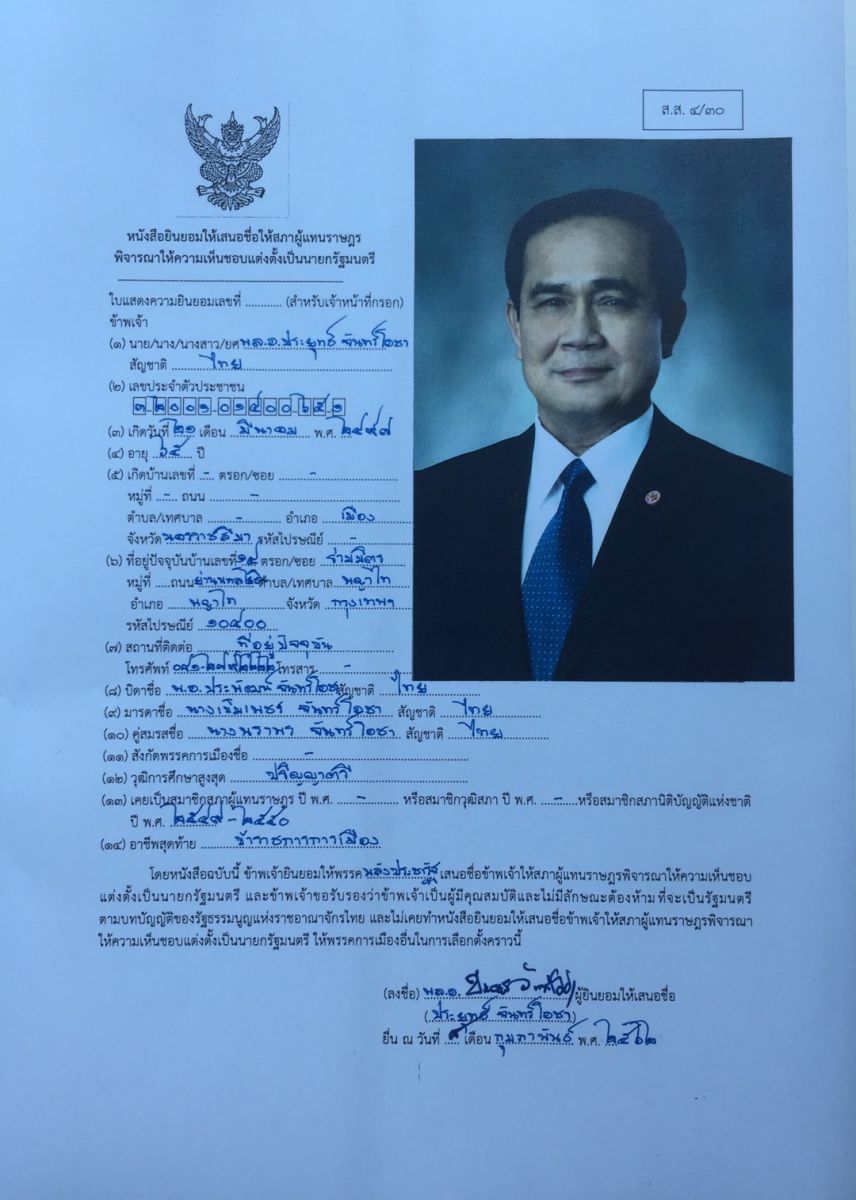 ส.ส. ๔/๓๐
หนังสือยินยอมให้เสนอชื่อให้สภาผู้แทนราษฎร
พิจารณาให้ความเห็นชอบแต่งตั้งเป็นนายกรัฐมนตรี
ใบแสดงความยินยอมเลขที่ ........... (สำหรับเจ้าหน้าที่กรอก)
ข้าพเจ้า
(๑) นาย/นาง/นางสาว/ยศ พล.อ.ประยุทธ์ จันทร์โอชา
สัญชาติ ไทย
(๒) เลขประจำตัวประชาชน
(๓) เกิดวันที่ ๒๑ เดือน มีนาคม พ.ศ. ๒๔๙๗
(๔) อายุ ๖๔ ปี
(๕) เกิดบ้านเลขที่ - ตรอก/ซอย -
หมู่ที่ - ถนน -
ตำบล/เทศบาล - อำเภอ เมือง
จังหวัด นครราชสีมา รหัสไปรษณีย์ -
(๖) ที่อยู่ปัจจุบันบ้านเลขที่ ตรอก/ซอย ร่วมมิตร
หมู่ที่ .... ถนน ตำบล/เทศบาล พญาไท
อำเภอ พญาไท จังหวัด กรุงเทพฯ
รหัสไปรษณีย์ ๑๐๔๐๐
(๗) สถานที่ติดต่อ ที่อยู่ปัจจุบัน
โทรศัพท์ โทรสาร -
(๘) บิดาชื่อ พ.อ.ประพัฒน์ จันทร์โอชา สัญชาติ ไทย
(๙) มารดาชื่อ นางเข็มเพชร จันทร์โอชา สัญชาติ ไทย
(๑๐) คู่สมรสชื่อ นางนราพร จันทร์โอชา สัญชาติ ไทย
(๑๑) สังกัดพรรคการเมืองชื่อ -
(๑๒) วุฒิการศึกษาสูงสุด ปริญญาตรี
(๑๓) เคยเป็นสมาชิกสภาผู้แทนราษฎร ปี พ.ศ. - หรือสมาชิกวุฒิสภา ปี พ.ศ. - หรือสมาชิกสภานิติบัญญัติแห่งชาติ
ปี พ.ศ. ๒๕๔๙ - ๒๕๕๐
(๑๔) อาชีพสุดท้าย ข้าราชการการเมือง
โดยหนังสือฉบับนี้ ข้าพเจ้ายินยอมให้พรรค พลังประชารัฐ เสนอชื่อข้าพเจ้าให้สภาผู้แทนราษฎรพิจารณาให้ความเห็นชอบ
แต่งตั้งเป็นนายกรัฐมนตรี และข้าพเจ้าขอรับรองว่าข้าพเจ้าเป็นผู้มีคุณสมบัติและไม่มีลักษณะต้องห้าม ที่จะเป็นรัฐมนตรี
ตามบทบัญญัติของรัฐธรรมนูญแห่งราชอาณาจักรไทย และไม่เคยทำหนังสือยินยอมให้เสนอชื่อข้าพเจ้าให้สภาผู้แทนราษฎรพิจารณา
ให้ความเห็นชอบแต่งตั้งเป็นนายกรัฐมนตรี ให้พรรคการเมืองอื่นในการเลือกตั้งคราวนี้
(ลงชื่อ) พล.อ. ผู้ยินยอมให้เสนอชื่อ
(ประยุทธ์ จันทร์โอชา)
ยื่น ณ วันที่ ๘ เดือน กุมภาพันธ์ พ.ศ. ๒๕๖๒